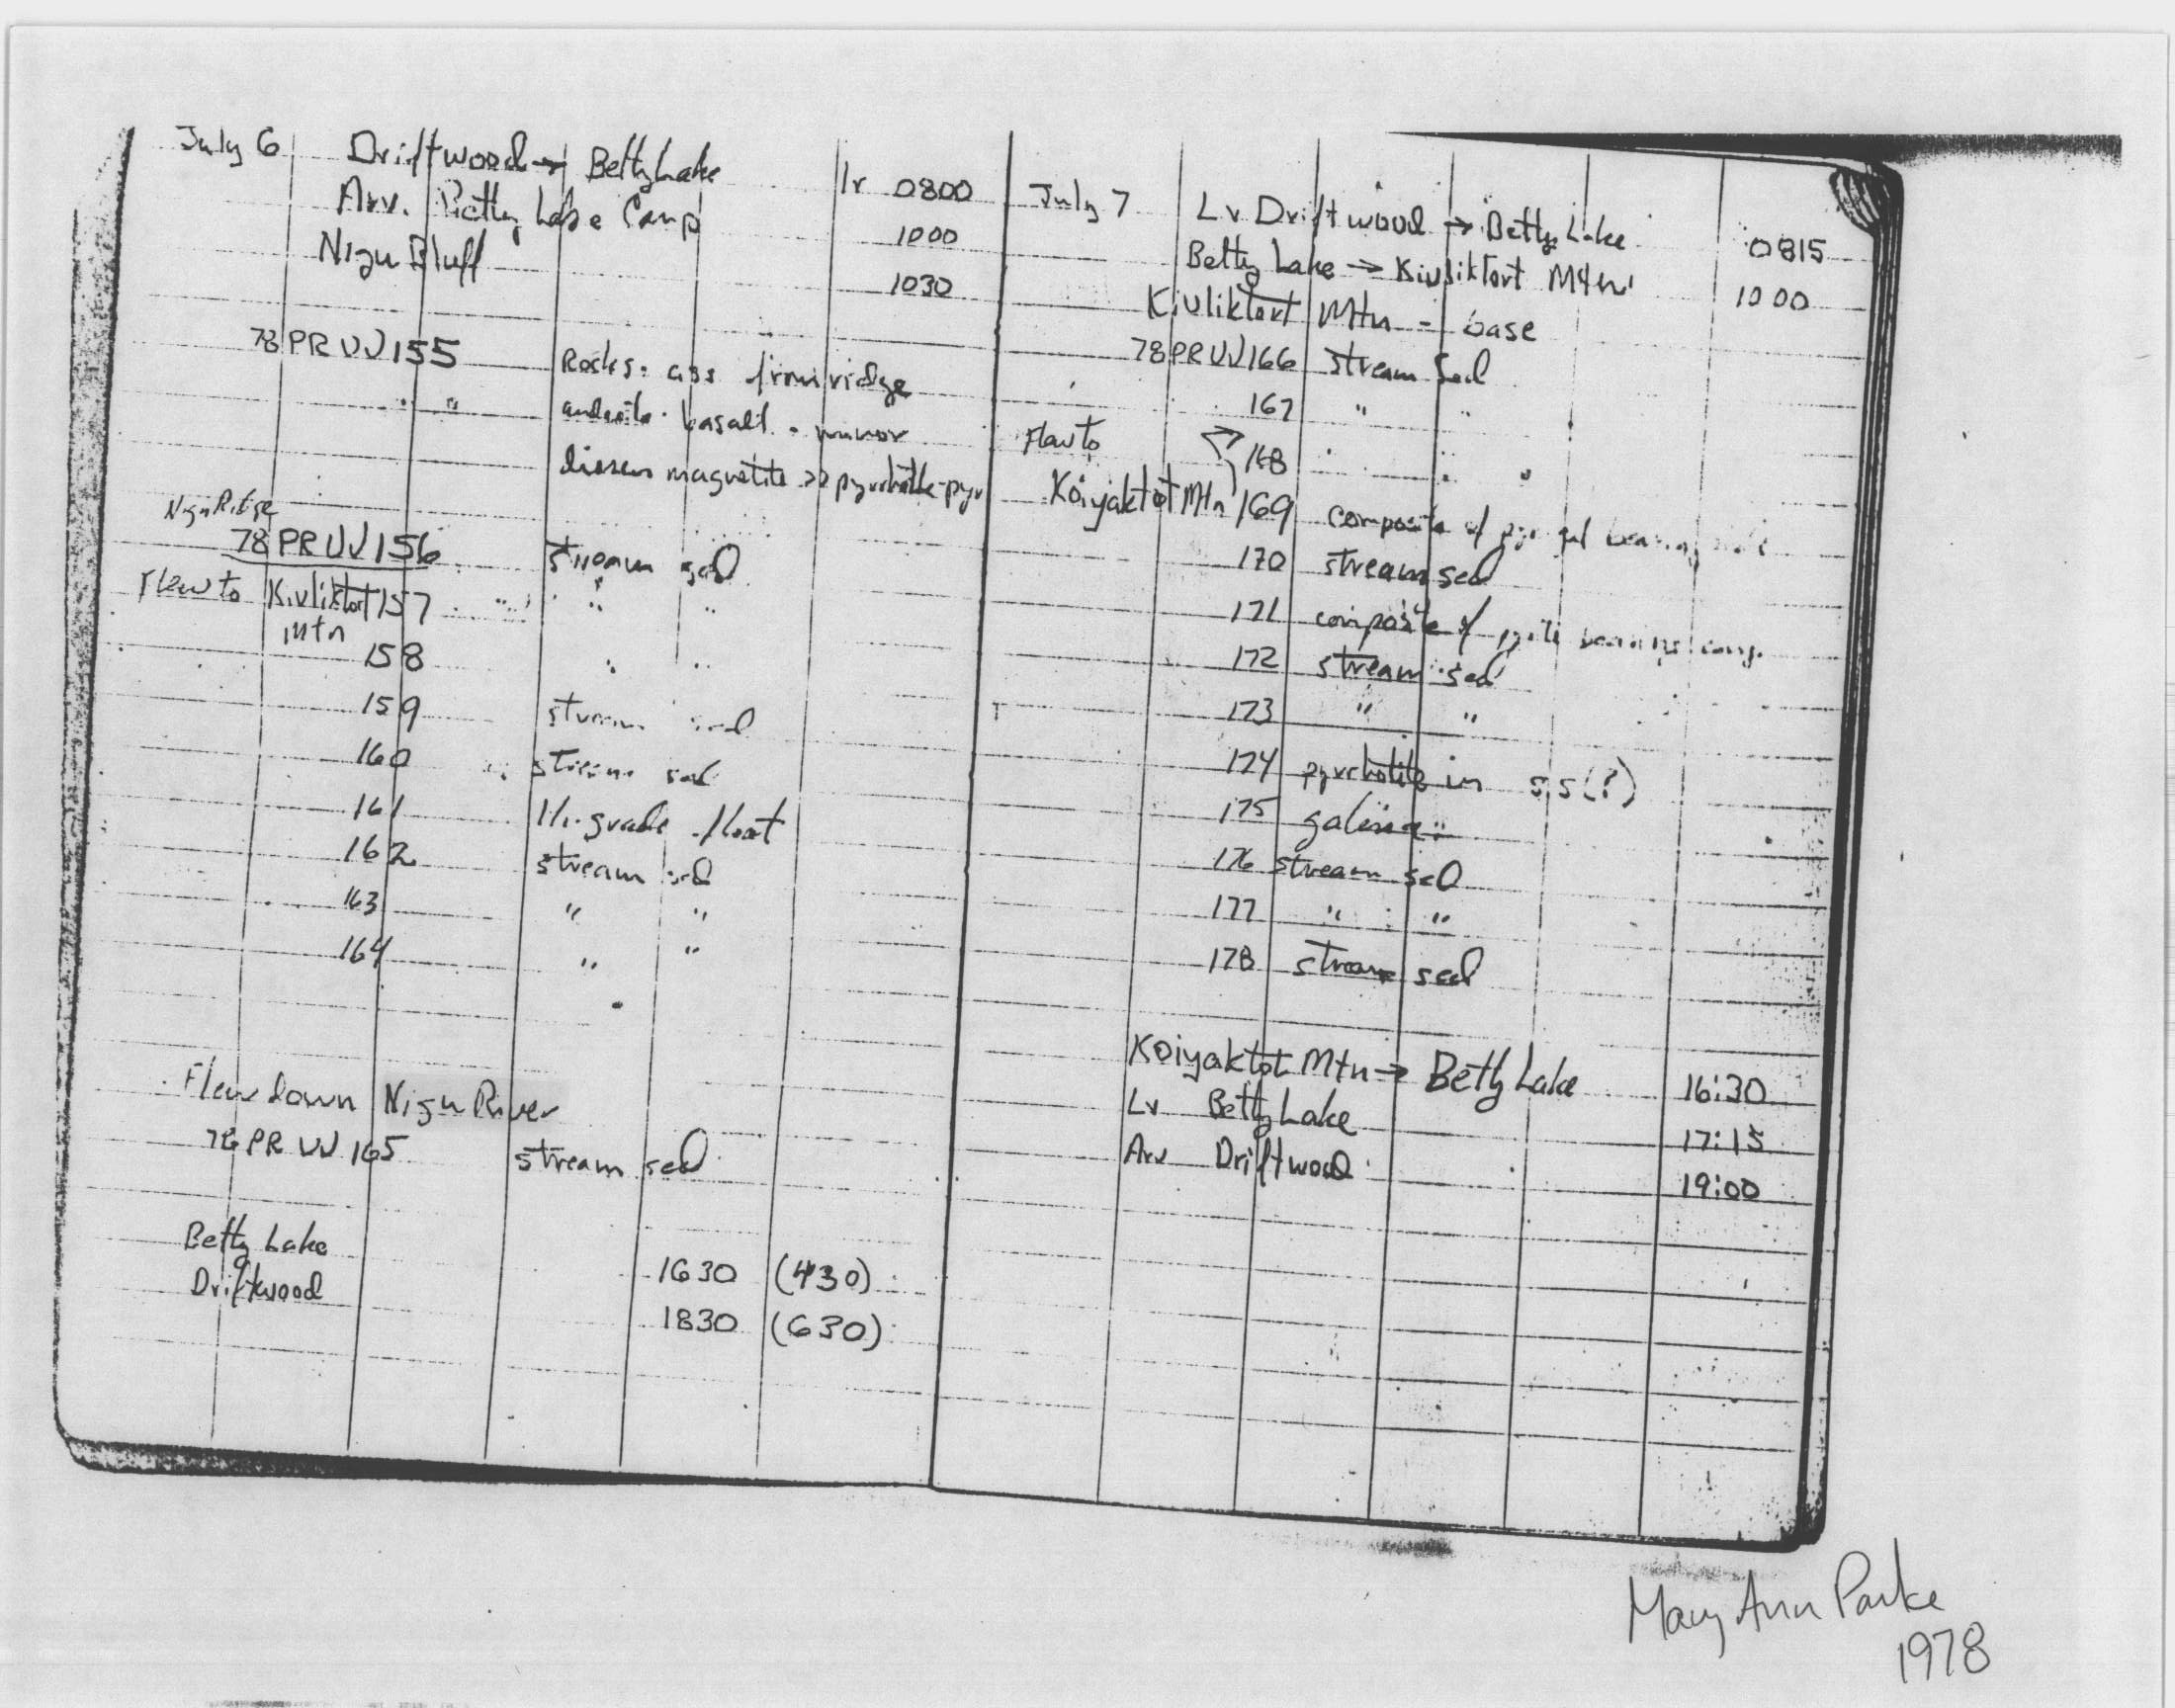 July 6 Driftwood → Betty Lake lv 0800
Arv. Betty Lake Camp 1000
Nigu Bluff 1030
78PRW155 Rocks: ass from ridge
" " andesite - basalt - minor
dissem magnetite >> pyrrhotite-pyr
Nigu Ridge
78PRW156 stream sed
Flew to Kivliktort 157 " "
Mtn
158 " "
159 stream sed
160 stream sed
161 Hi-grade float
162 stream sed
163 " "
164 " "
Flew down Nigu River
78PRW165 stream sed
Betty Lake 1630 (430)
Driftwood 1830 (630)
July 7 Lv Driftwood → Betty Lake 0815
Betty Lake → Kivliktort Mtn 1000
Kivliktort Mtn - base
78PRW166 stream sed
167 " "
Flew to 168 " "
Koiyaktot Mtn 169 composite of bearing
170 stream sed
171 composite of bearing cong.
172 stream sed
173 " "
174 pyrrhotite in ss(?)
175 galena
176 stream sed
177 " "
178 stream sed
Koiyaktot Mtn → Betty Lake 16:30
Lv Betty Lake 17:15
Arv Driftwood 19:00
Mary Ann Parke
1978